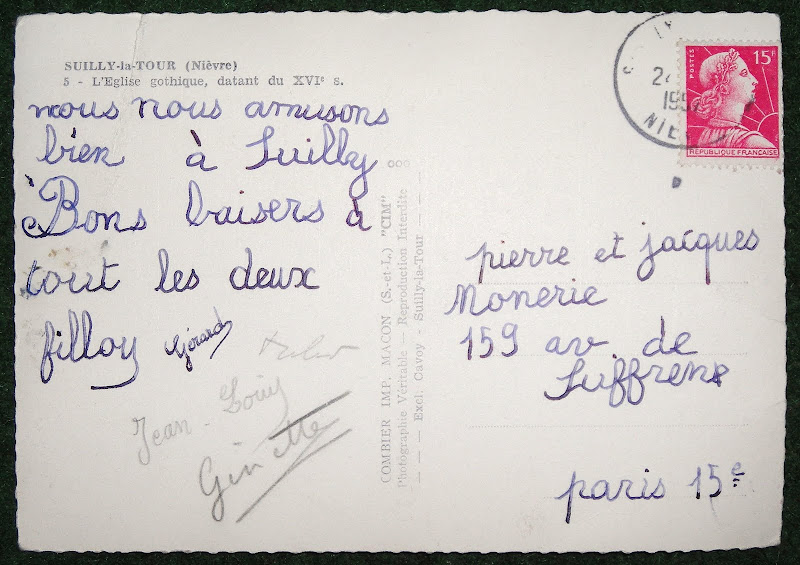 SUILLY-la-TOUR (Nièvre)
5 - L'Eglise gothique, datant du XVIe s.
nous nous amusons
bien à Suilly
Bons baisers à
tout les deux
filloy Gérard
Jean-Louis
Ginette
COMBIER IMP. MACON (S.-et-L.) "CIM"
Photographie Véritable — Reproduction Interdite
— — Excl. Cavoy - Suilly-la-Tour — —
POSTES
15F
REPUBLIQUE FRANCAISE
24
NIE
pierre et jacques
Monerie
159 av de
Suffren
paris 15e